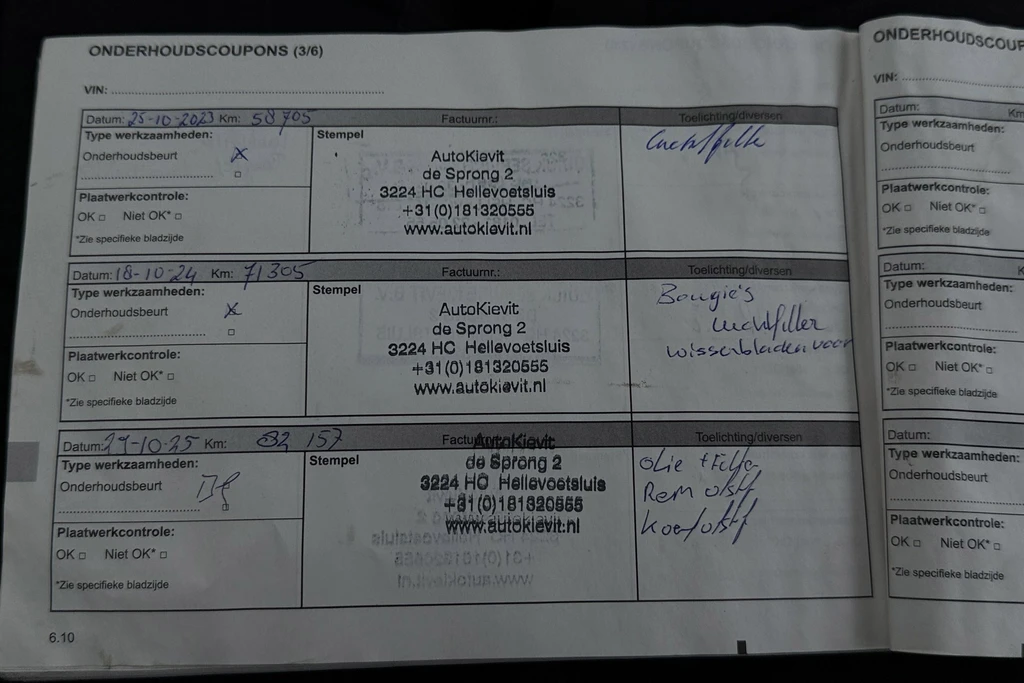 ONDERHOUDSCOUPONS (3/6)
VIN:
Datum: 25-10-2023 Km: 58705 Factuurnr.: Toelichting/diversen
Type werkzaamheden:
Onderhoudsbeurt X
Stempel
AutoKievit
de Sprong 2
3224 HC Hellevoetsluis
+31(0)181320555
www.autokievit.nl
Luchtfilter
Plaatwerkcontrole:
OK □ Niet OK* □
*Zie specifieke bladzijde
Datum: 18-10-24 Km: 71305 Factuurnr.: Toelichting/diversen
Type werkzaamheden:
Onderhoudsbeurt X
Stempel
AutoKievit
de Sprong 2
3224 HC Hellevoetsluis
+31(0)181320555
www.autokievit.nl
Bougie's
Luchtfilter
wisserbladen voor
Plaatwerkcontrole:
OK □ Niet OK* □
*Zie specifieke bladzijde
Datum: 29-10-25 Km: 82 157 Toelichting/diversen
Type werkzaamheden:
Onderhoudsbeurt
Stempel
AutoKievit
de Sprong 2
3224 HC Hellevoetsluis
+31(0)181320555
www.autokievit.nl
Olie + Filter
Rem olstf
Koelvlstf
Plaatwerkcontrole:
OK □ Niet OK* □
*Zie specifieke bladzijde
6.10
VIN:
Datum:
Type werkzaamheden:
Onderhoudsbeurt
Plaatwerkcontrole:
OK □ Niet OK* □
*Zie specifieke bladzijde
Datum:
Type werkzaamheden:
Onderhoudsbeurt
Plaatwerkcontrole:
OK □ Niet OK* □
*Zie specifieke bladzijde
Datum:
Type werkzaamheden:
Onderhoudsbeurt
Plaatwerkcontrole:
OK □ Niet OK* □
*Zie specifieke bladzijde